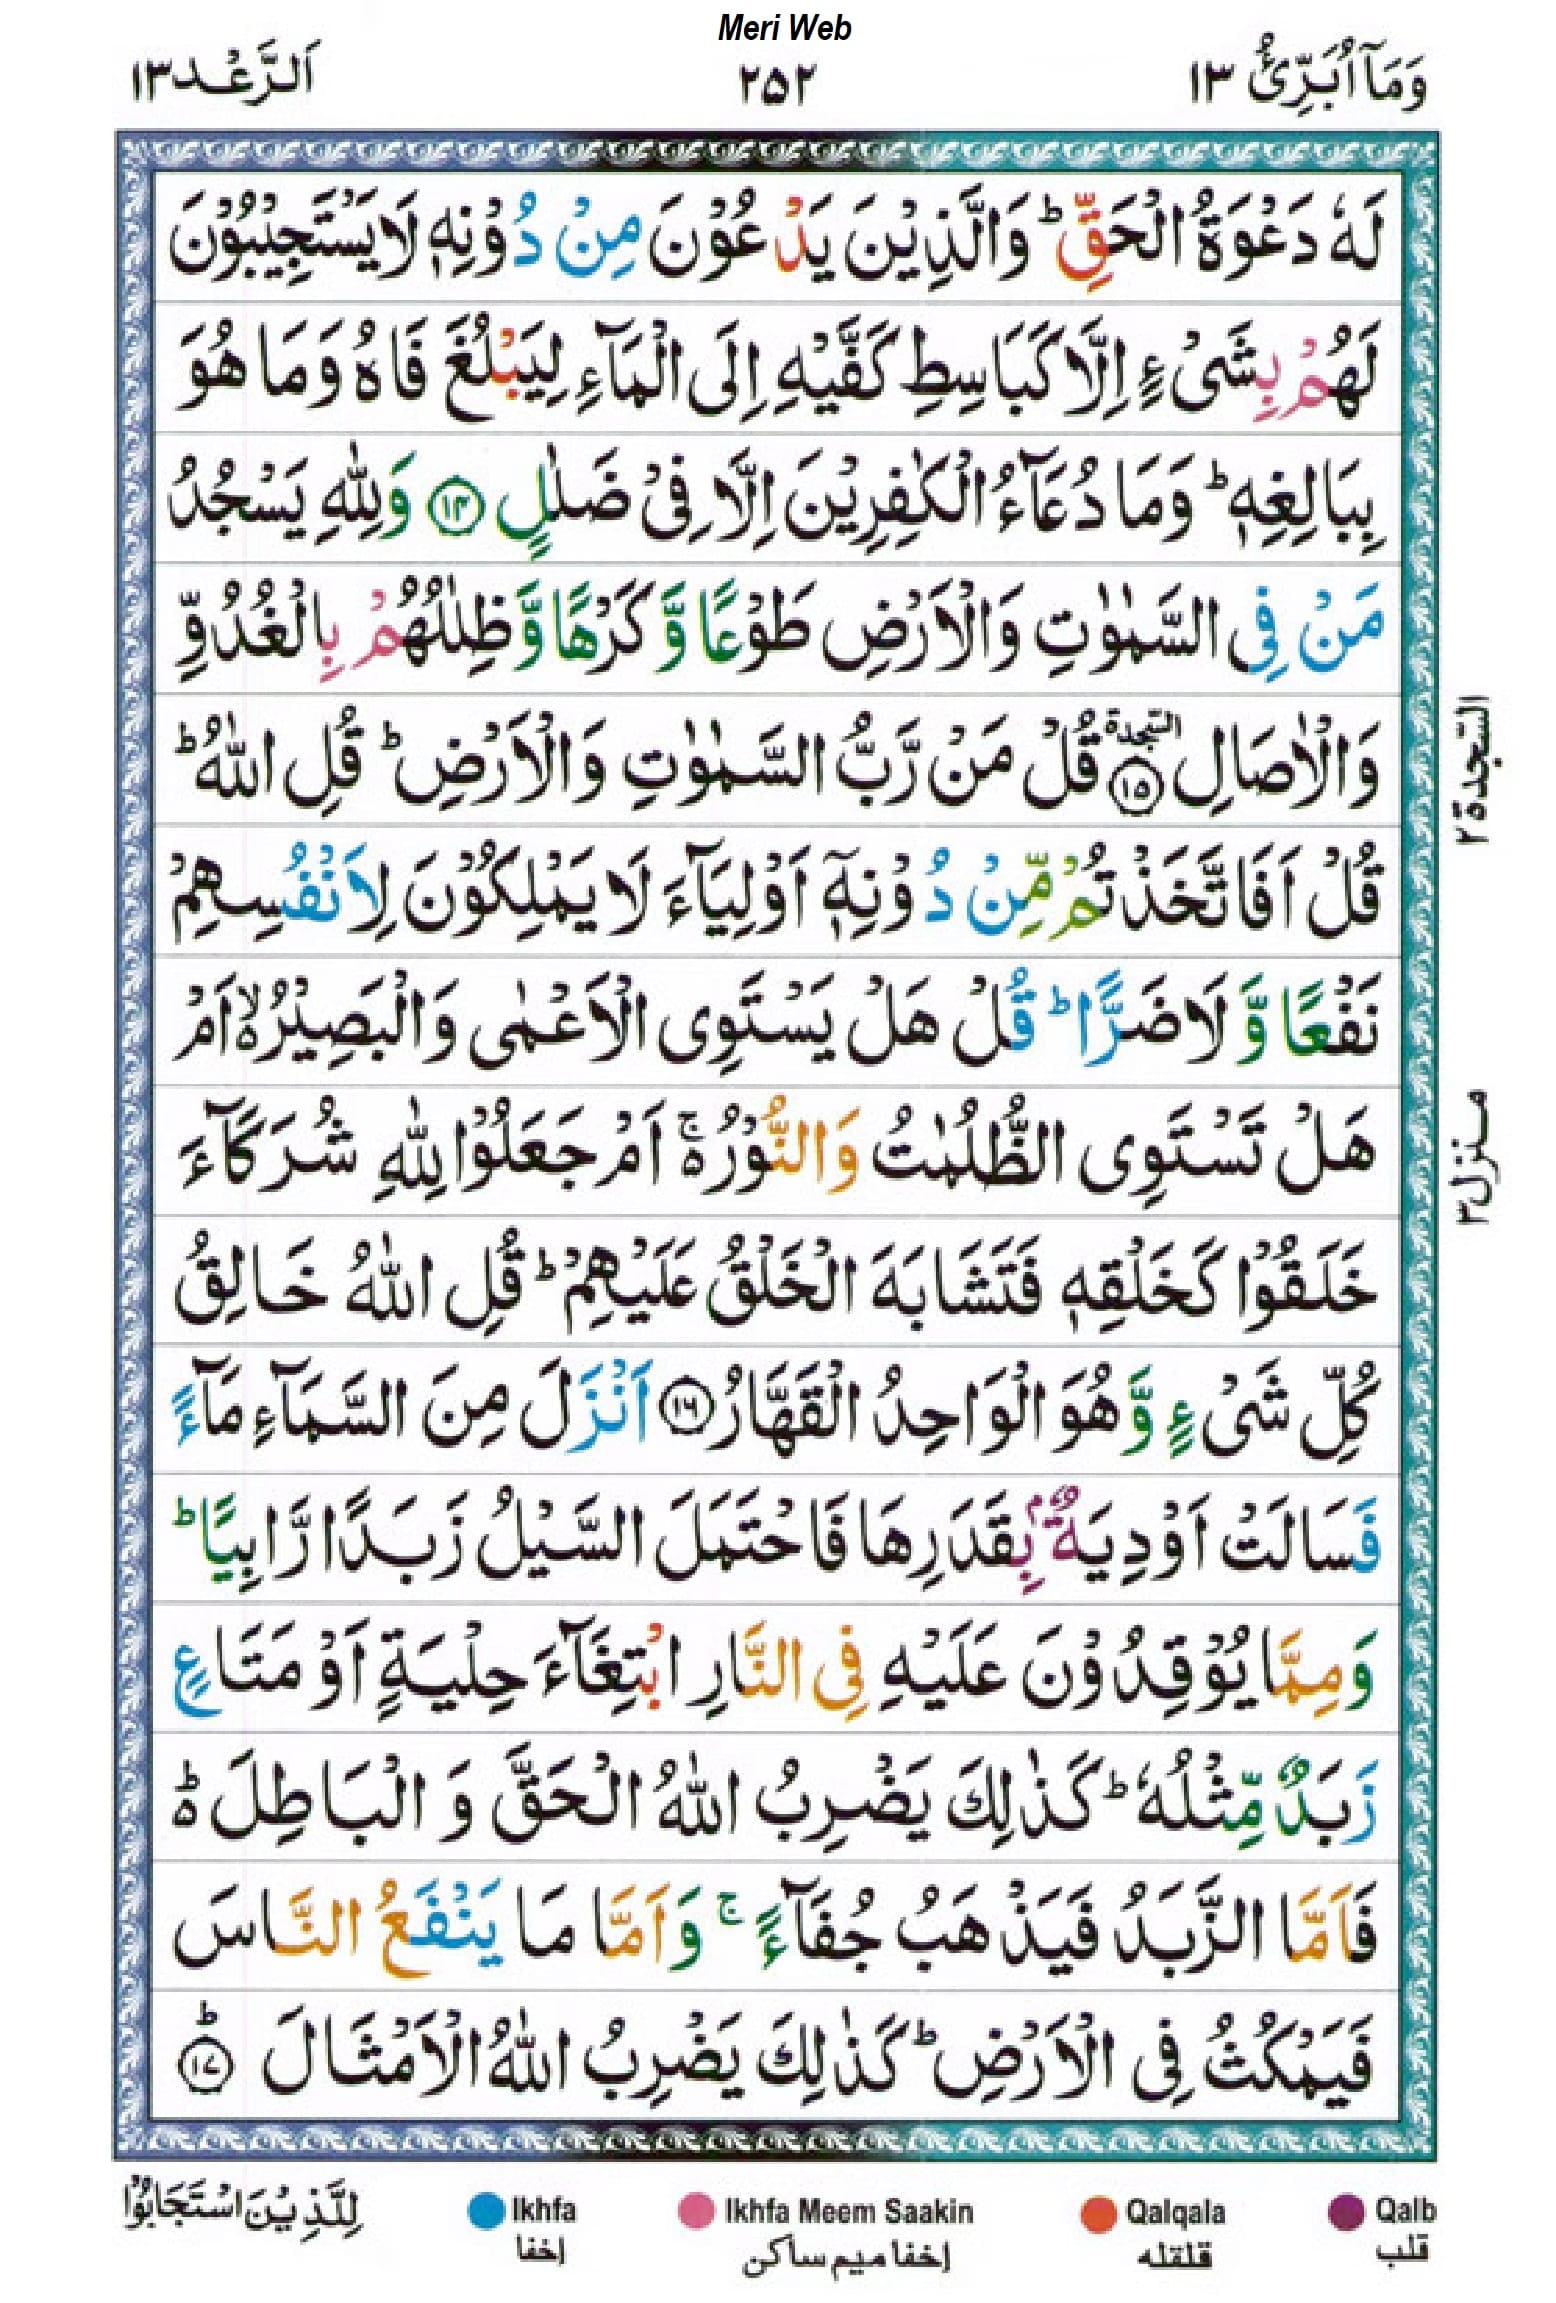 Meri Web
وَمَآ اُبَرِّئُ ١٣
٢٥٢
اَلرَّعْد ١٣
لَهٗ دَعْوَةُ الْحَقِّ ؕ وَالَّذِيْنَ يَدْعُوْنَ مِنْ دُوْنِهٖ لَا يَسْتَجِيْبُوْنَ
لَهُمْ بِشَىْءٍ اِلَّا كَبَاسِطِ كَفَّيْهِ اِلَى الْمَآءِ لِيَبْلُغَ فَاهُ وَمَا هُوَ
بِبَالِغِهٖ ؕ وَمَا دُعَآءُ الْكٰفِرِيْنَ اِلَّا فِىْ ضَلٰلٍ ١٤ وَلِلّٰهِ يَسْجُدُ
مَنْ فِى السَّمٰوٰتِ وَالْاَرْضِ طَوْعًا وَّكَرْهًا وَّظِلٰلُهُمْ بِالْغُدُوِّ
وَالْاٰصَالِ ١٥ السجدة قُلْ مَنْ رَّبُّ السَّمٰوٰتِ وَالْاَرْضِ ؕ قُلِ اللّٰهُ ؕ
السجدة ٢
قُلْ اَفَاتَّخَذْتُمْ مِّنْ دُوْنِهٖٓ اَوْلِيَآءَ لَا يَمْلِكُوْنَ لِاَنْفُسِهِمْ
نَفْعًا وَّلَا ضَرًّا ؕ قُلْ هَلْ يَسْتَوِى الْاَعْمٰى وَالْبَصِيْرُ ەۙ اَمْ
هَلْ تَسْتَوِى الظُّلُمٰتُ وَالنُّوْرُ ەۚ اَمْ جَعَلُوْا لِلّٰهِ شُرَكَآءَ
منزل ٣
خَلَقُوْا كَخَلْقِهٖ فَتَشَابَهَ الْخَلْقُ عَلَيْهِمْ ؕ قُلِ اللّٰهُ خَالِقُ
كُلِّ شَىْءٍ وَّهُوَ الْوَاحِدُ الْقَهَّارُ ١٦ اَنْزَلَ مِنَ السَّمَآءِ مَآءً
فَسَالَتْ اَوْدِيَةٌۢ بِقَدَرِهَا فَاحْتَمَلَ السَّيْلُ زَبَدًا رَّابِيًا ؕ
وَمِمَّا يُوْقِدُوْنَ عَلَيْهِ فِى النَّارِ ابْتِغَآءَ حِلْيَةٍ اَوْ مَتَاعٍ
زَبَدٌ مِّثْلُهٗ ؕ كَذٰلِكَ يَضْرِبُ اللّٰهُ الْحَقَّ وَالْبَاطِلَ ەؕ
فَاَمَّا الزَّبَدُ فَيَذْهَبُ جُفَآءً ۚ وَاَمَّا مَا يَنْفَعُ النَّاسَ
فَيَمْكُثُ فِى الْاَرْضِ ؕ كَذٰلِكَ يَضْرِبُ اللّٰهُ الْاَمْثَالَ ؕ ١٧
لِلَّذِيْنَ اسْتَجَابُوْا
Ikhfa
اخفا
Ikhfa Meem Saakin
اخفا ميم ساكن
Qalqala
قلقله
Qalb
قلب